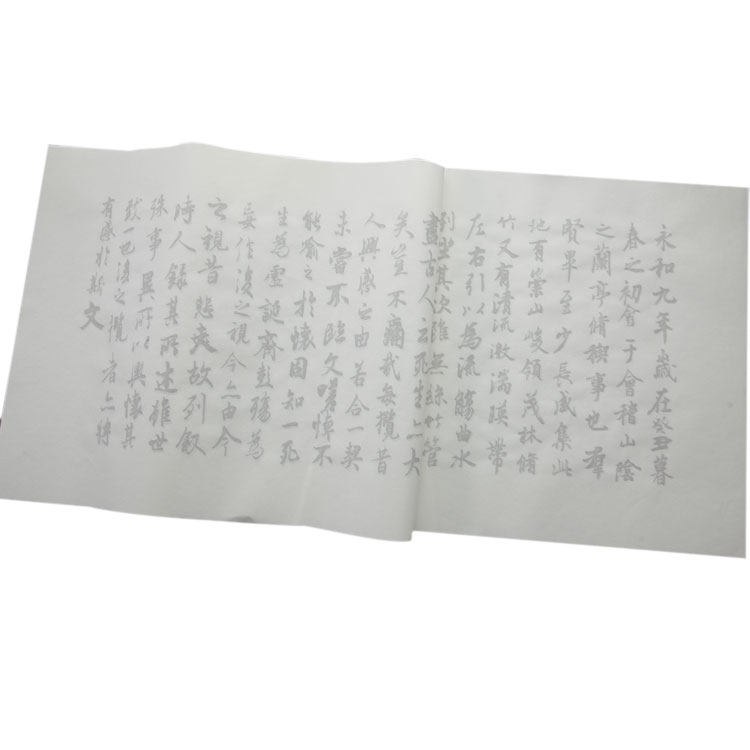 永和九年歲在癸丑暮
春之初會于會稽山陰
之蘭亭脩稧事也羣
賢畢至少長咸集此
地有崇山峻領茂林脩
竹又有清流激湍暎帶
左右引以為流觴曲水
列坐其次雖無絲竹管
盡古人云死生亦大
矣豈不痛哉每攬昔
人興感之由若合一契
未嘗不臨文嗟悼不
能喻之於懷固知一死
生為虛誕齊彭殤為
妄作後之視今亦由今
之視昔悲夫故列敘
時人錄其所述雖世
殊事異所以興懷其
致一也後之攬者亦將
有感於斯文